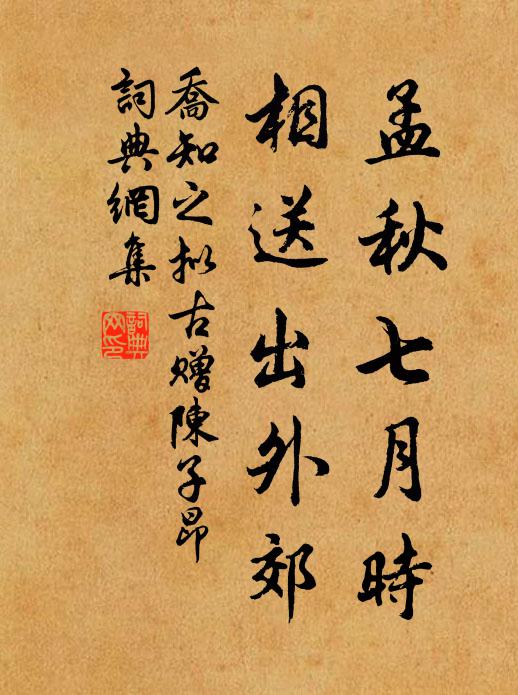 孟秋七月時
相送出外郊
喬知之拟古赠陳子昂
詞典網集
詞典
网印